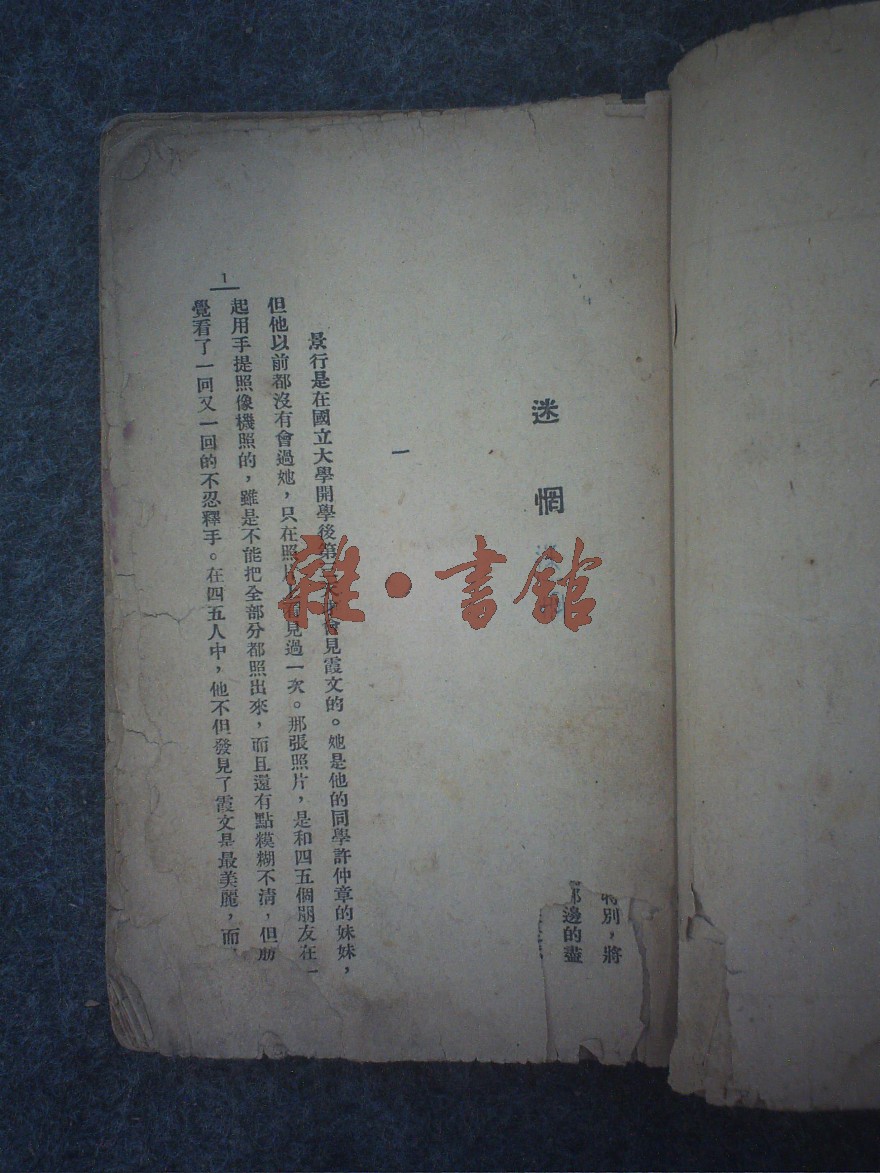 特別，將
邊的盡
迷惘
一
景行是在國立大學開學後第三天會見霞文的。她是他的同學許仲章的妹妹，
但他以前都沒有會過她，只在照片上看見過一次。那張照片，是和四五個朋友在一
起用手提照像機照的，雖是不能把全部分都照出來，而且還有點糢糊不清，但
覺看了一回又一回的不忍釋手。在四五人中，他不但發見了霞文是最美麗，而
1
雜·書館